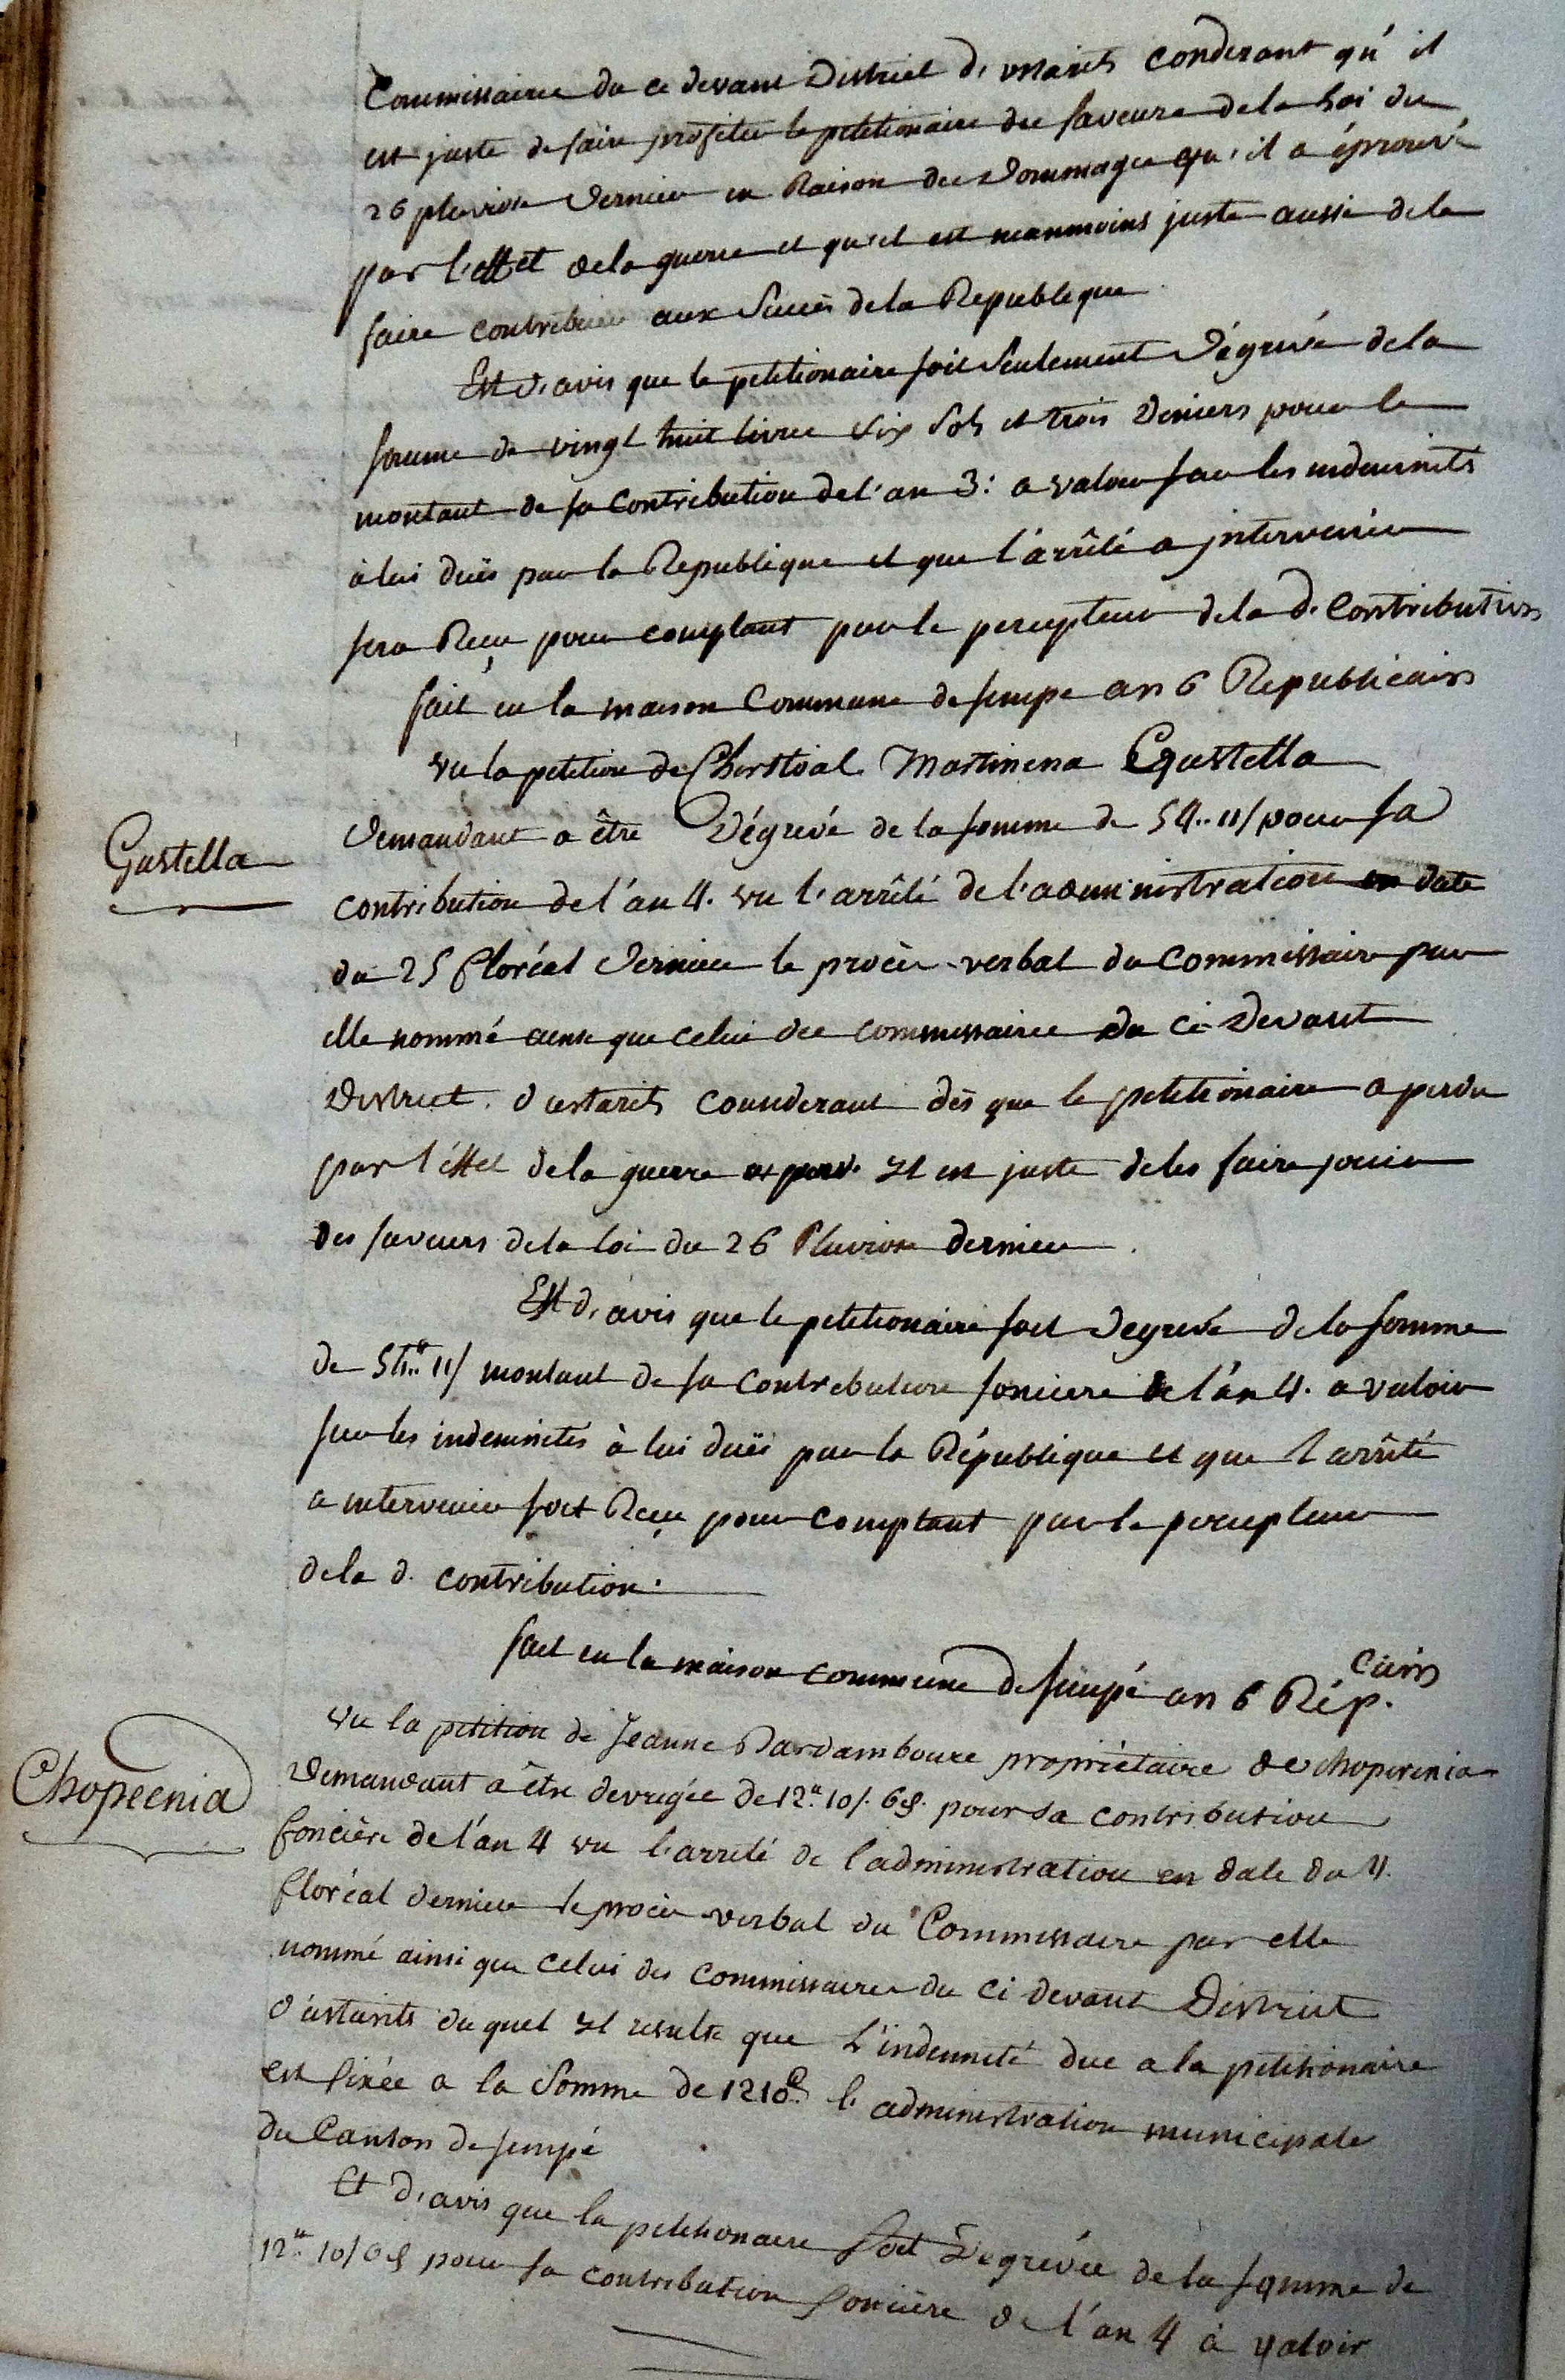 Commissaires du ce devant District d'ustarits conderant qu'il
est juste de faire profiter le petitionaire des faveurs de la Loi du
26 pluviose dernier en Raison des dommages qu'il a éprouvé
par l'effet de la guerre et qu'il est neanmoins juste aussi de le
faire contribuer aux Succès de la Republique
Est d'avis que le petitionaire soit Seulement dégrévé de la
somme de vingt huit livres Six Sols et trois deniers pour le
montant de sa contribution de l'an 3: a valoir sur les indemnités
à lui duës par la Republique et que l'arrêté a intervenir
sera Reçu pour comptant par le percepteur de la d. Contribution
fait en la maison Commune de sempe an 6 Republicain
vu la petition de Chirstoal Martinena Ggastella
Gastella
demandant a être Dégrevé de la somme de 54.. 11/ pour sa
contribution de l'an 4. vu l'arrêté de l'administration en date
du 25 floréal dernier le procès-verbal du Commissaire par
elle nommé ainsi que celui des commissaires du ci-devant
District d'ustarits considerant dès que le petitionaire a perdu
par l'éffet de la guerre il est juste de les faire jouir
des faveurs de la loi du 26 Pluviose dernier.
Est d'avis que le petitionaire soit degrevé de la somme
de 54.. 11/ montant de sa contrebution fonciere de l'an 4. a valoir
sur les indemnites à lui duës par la République et que l'arrêté
a intervenir soit Reçu pour comptant par le percepteur
de la d. contribution.
fait en la maison commune de sempé an 6 Rép.cain
vu la petition de Jeanne Dardamboure propriétaire de choperenia
Chopeenia
demandant a être devregée de 12.. 10/. 6 d. pour sa contribution
foncière de l'an 4 vu l'arreté de l'administration en date du 4.
floréal dernier le procès verbal du Commissaire par elle
nommé ainsi que celui des commissaires du ci devant District
d'ustarits duquel il resulte que L'indemnité due a la petitionaire
est fixée a la Somme de 1210 l'administration municipale
du Canton de sempé
Et d'avis que la petitionaire Soit Degrévée de la somme de
12.. 10/ 6 d pour sa contribution foncière de l'an 4 à valoir